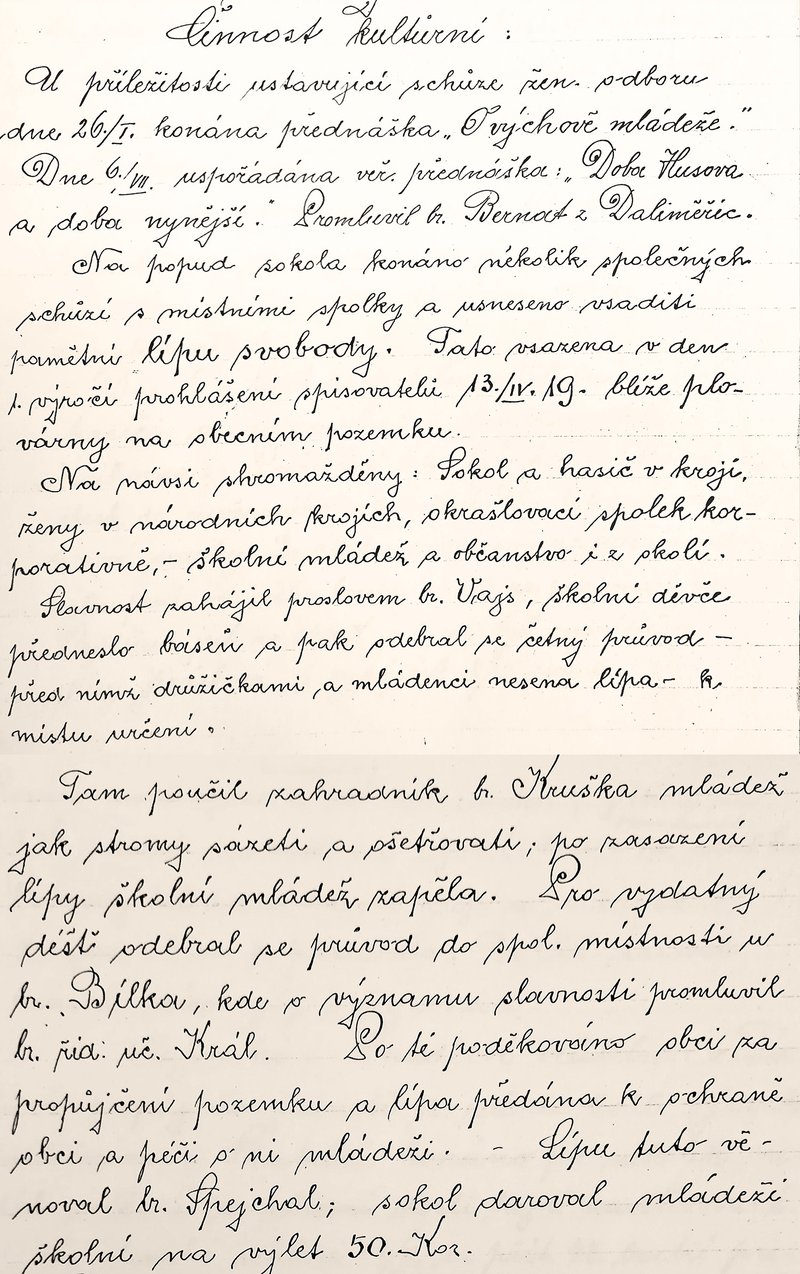 Činnost kultůrní :
U příležitosti ustavující schůze žen. odboru
dne 26./I. konána přednáška „O výchově mládeže."
Dne 6./VII. uspořádána veř. přednáška: „Doba Husova
a doba nynější." Promluvil br. Bernat z Daliměřic.
Na popud sokola konáno několik společných
schůzí s místními spolky a usneseno vsaditi
pamětní „lípu svobody. Tato vsazena v den
1. výročí prohlášení spisovatelů 13./IV. 19. blíže plo-
várny na obecním pozemku.
Na návsi shromažděny: Sokol a hasič v kroji,
ženy v národních krojích, okrašlovací spolek kor-
porativně, – školní mládež a občanstvo i z okolí.
Slavnost zahájil proslovem br. Vajs, školní děvče
předneslo báseň a pak odebral se četný průvod –
před nímž družičkami a mládenci nesena lípa – k
místu určení.
Tam poučil zahradník br. Kruška mládež
jak stromy sázeti a ošetřovati; po zasazení
lípy školní mládež zapěla. Pro vydatný
déšť odebral se průvod do spol. místnosti u
br. Bílka, kde o významu slavnosti promluvil
br. řid. uč. Král. Po té poděkováno obci za
propůjčení pozemku a lípa předána k ochraně
obci a péči o ni mládeži. – Lípu tuto vě-
noval br. Špejchal; sokol daroval mládeži
školní na výlet 50. Kor.